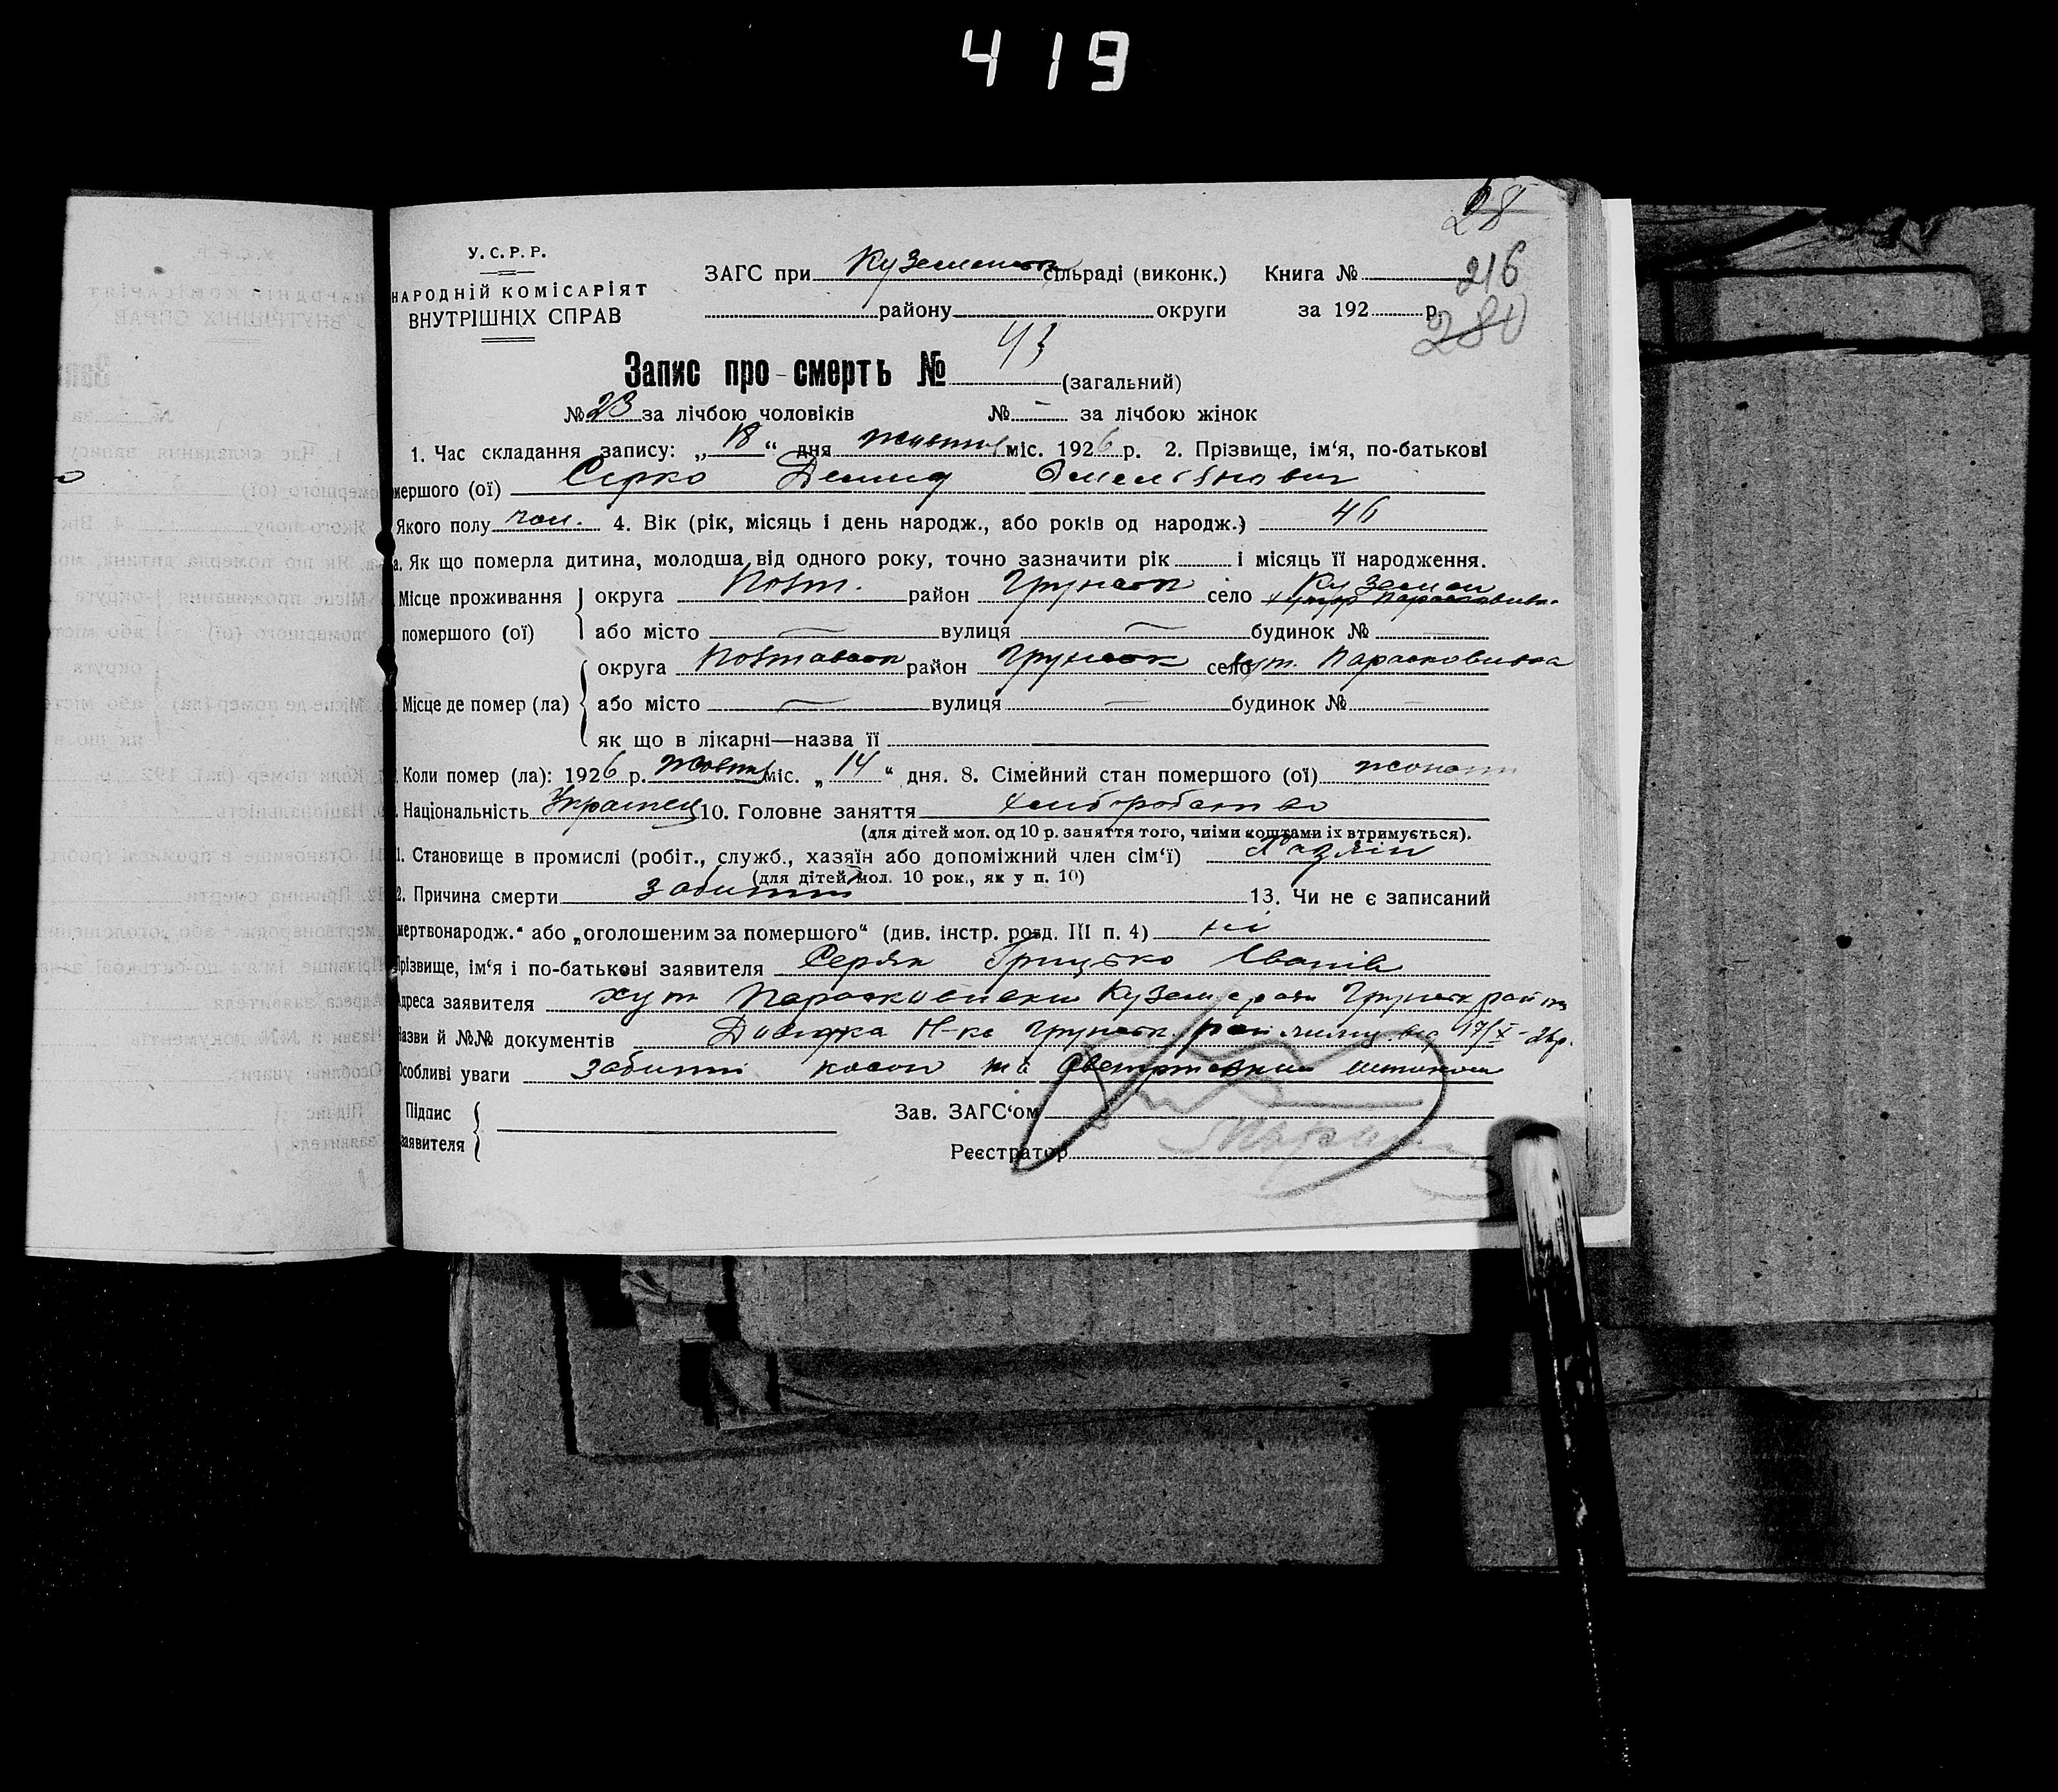 419
28
У. С. Р. Р.
НАРОДНІЙ КОМІСАРІЯТ
ВНУТРІШНІХ СПРАВ
ЗАГС при Куземенськ сільраді (виконк.) Книга № 216
району округи за 192 р. 280
Запис про смерть № 43 (загальний)
№ 23 за лічбою чоловіків № – за лічбою жінок
1. Час складання запису: „18“ дня жовтня міс. 1926 р. 2. Прізвище, ім‘я, по-батькові
мершого (ої) Сірко Демид Омелянович
Якого полу чол. 4. Вік (рік, місяць і день народж., або років од народж.) 46
а. Як що померла дитина, молодша від одного року, точно зазначити рік і місяць її народження.
Місце проживання округа Полт. район Грунськ село Куземен
хутор Парасковивка
помершого (ої) або місто — вулиця — будинок № —
округа Полтавськ район Грунськ село хут. Парасковивка
Місце де помер (ла) або місто — вулиця — будинок № —
як що в лікарні—назва її
Коли помер (ла): 1926 р. жовтня міс. „14“ дня. 8. Сімейний стан помершого (ої) жонат
Національність Українец 10. Головне заняття хліборобство
(для дітей мол. од 10 р. заняття того, чиїми коштами їх втримується).
1. Становище в промислі (робіт., служб., хазяїн або допоміжний член сім‘ї) Хазяїн
(для дітей мол. 10 рок., як у п. 10)
2. Причина смерти забитт 13. Чи не є записаний
мертвонародж.“ або „оголошеним за помершого“ (див. інстр. розд. III п. 4) ні
Прізвище, ім‘я і по-батькові заявителя Серяк Грицько Іванів
Адреса заявителя хут Парасковивки Кузем с ради Грунськ райну
Назви й №№ документів Довідка Н-ка Грунськ. рай міліц. від 17/X-26р.
Особливі уваги забитт косою та
Підпис Зав. ЗАГС‘ом
заявителя
Реєстратор